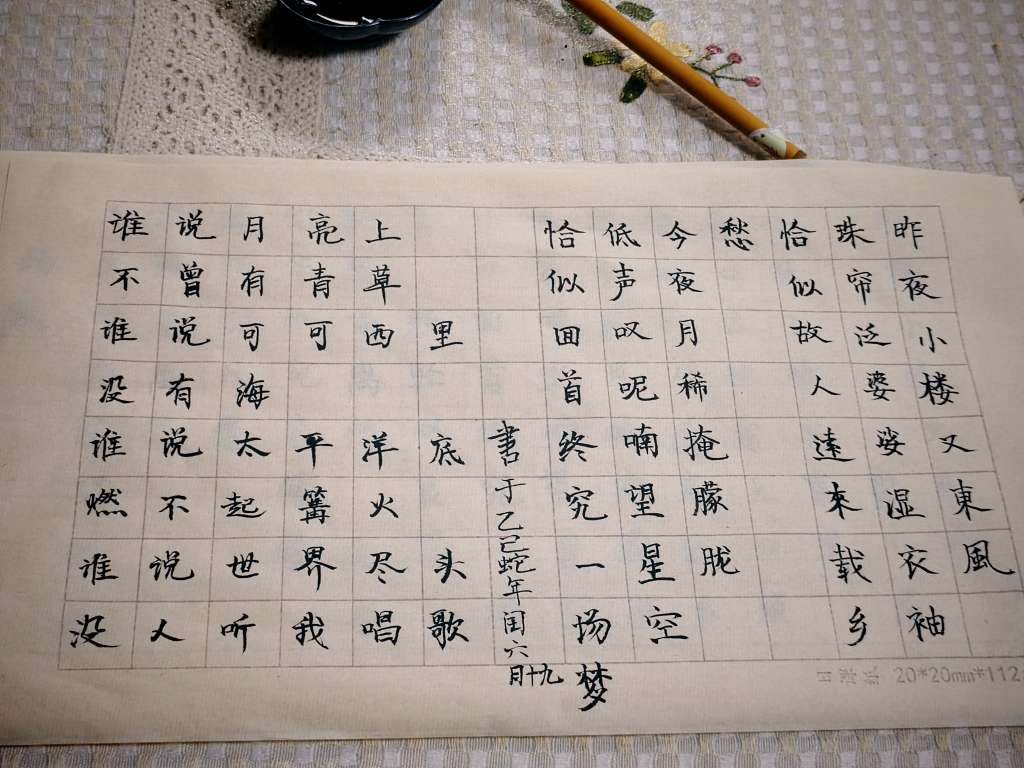 昨夜小楼又東風
珠帘泛婆娑湿衣袖
恰似故人遠来载乡
愁
今夜月稀掩朦胧
低声叹呢喃望星空
恰似囬首终究一场梦
書于乙巳蛇年闰六月十九
谁说月亮上
不曾有青草
谁说可可西里
没有海
谁说太平洋底
燃不起篝火
谁说世界尽头
没人听我唱歌
20*20mm*112